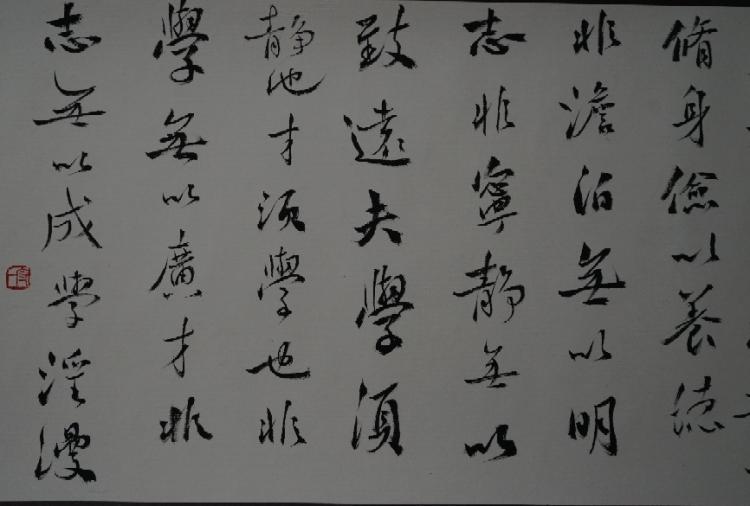 脩身儉以養德
非澹泊無以明
志非寧靜無以
致遠夫學須
靜也才須學也非
學無以廣才非
志無以成學淫漫